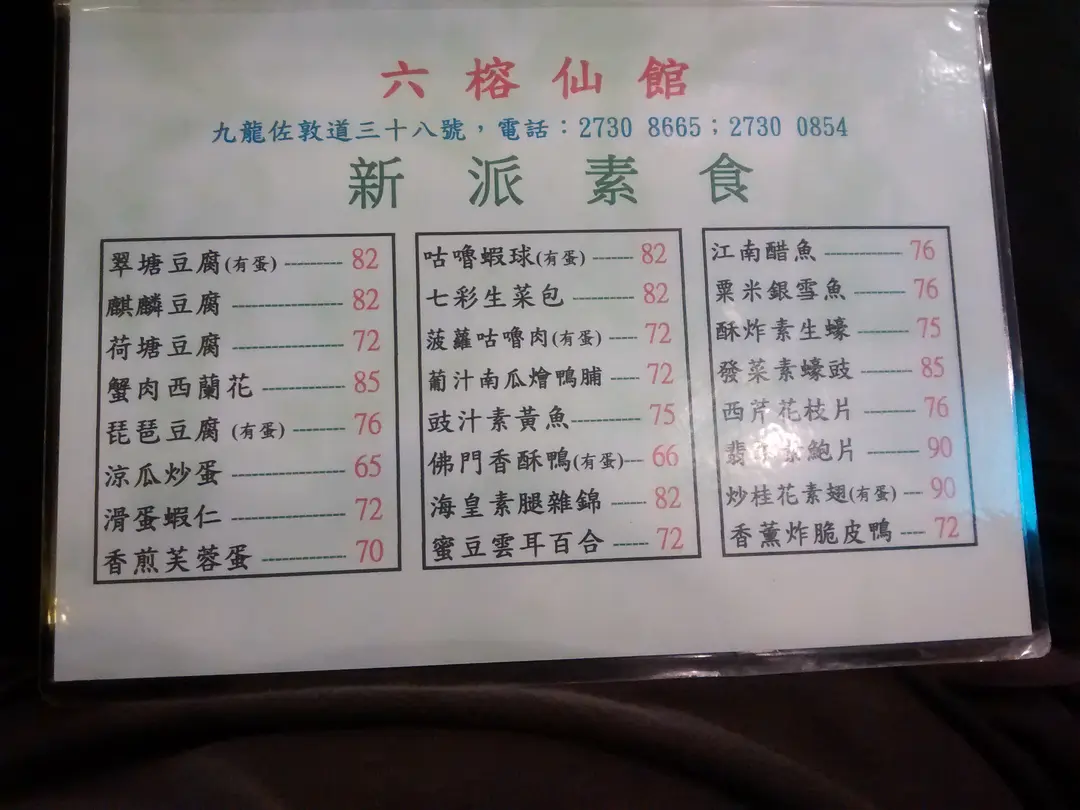 六榕仙館
九龍佐敦道三十八號，電話：2730 8665；2730 0854
新派素食
翠塘豆腐(有蛋) ---------- 82
麒麟豆腐 ---------- 82
荷塘豆腐 ---------- 72
蟹肉西蘭花 ---------- 85
琵琶豆腐 (有蛋) ---------- 76
涼瓜炒蛋 ---------- 65
滑蛋蝦仁 ---------- 72
香煎芙蓉蛋 ---------- 70
咕嚕蝦球(有蛋) ------ 82
七彩生菜包 ---------- 82
菠蘿咕嚕肉(有蛋) ---- 72
葡汁南瓜燴鴨脯 ---- 72
豉汁素黃魚-------- 75
佛門香酥鴨(有蛋)-- 66
海皇素腿雜錦 ----- 82
蜜豆雲耳百合 ----- 72
江南醋魚 ---------- 76
粟米銀雪魚 -------- 76
酥炸素生蠔 ------- 75
發菜素蠔豉 ------- 85
西芹花枝片 ------- 76
翡 鮑片 ------- 90
炒桂花素翅(有蛋) -- 90
香薰炸脆皮鴨 ---- 72